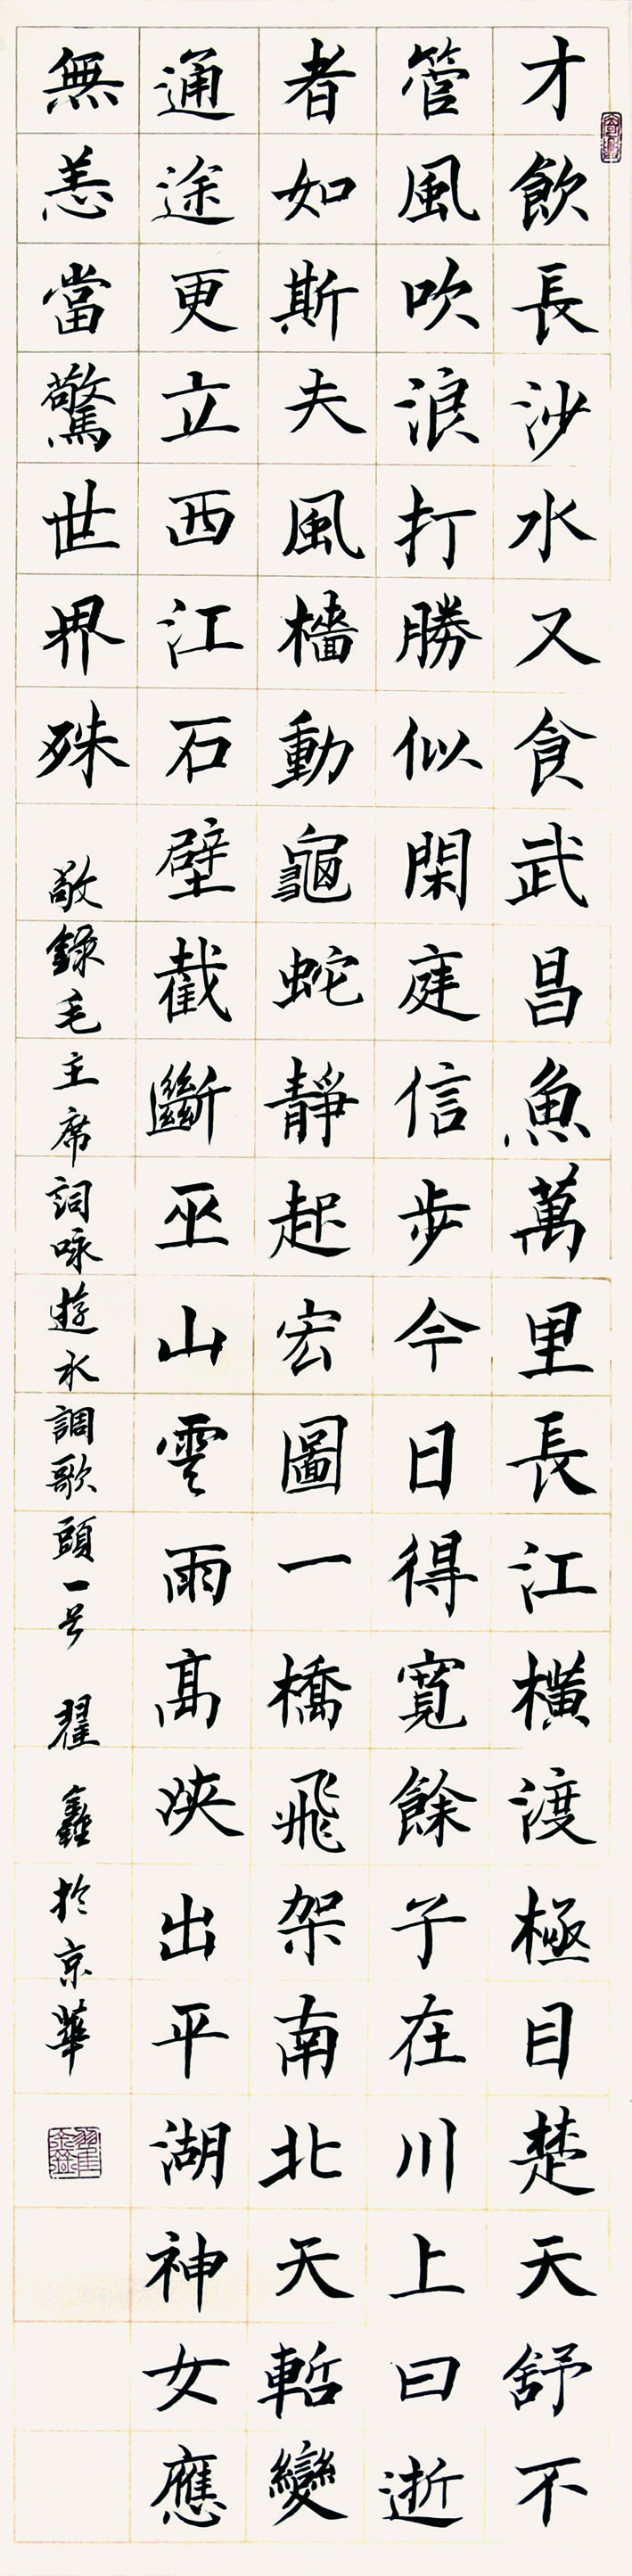 才飲長沙水又食武昌魚萬里長江橫渡極目楚天舒不
管風吹浪打勝似閑庭信步今日得寬餘子在川上曰逝
者如斯夫風檣動龜蛇靜起宏圖一橋飛架南北天塹變
通途更立西江石壁截斷巫山雲雨高峽出平湖神女應
無恙當驚世界殊 敬錄毛主席詞咏遊水調歌頭一首 翟鑫於京華